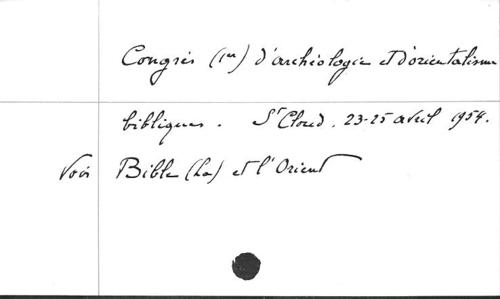 Congrès (1er) d'archéologie et d'orientalisme
bibliques. St Cloud. 23-25 avril 1954.
Voir Bible (La) et l'Orient